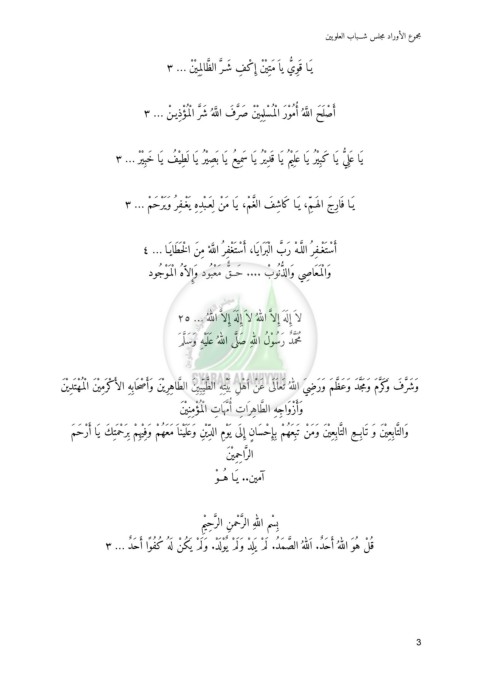 مجموع الأوراد مجلس شــباب العلويين
يَـا قَوِيُّ ياَ مَتِيْنْ إِكْفِ شَـرَّ الظَّالِمِيْنْ ... ٣
أَصْلَحَ اللهُ أُمُوْرَ الْمُسْلِمِيْنْ صَرَّفَ اللهُ شَرَّ الْمُؤْذِيـنْ ... ٣
يَا عَلِيُّ يَا كَبِيْرُ يَا عَلِيْمُ يَا قَدِيْرُ يَا سَمِيعُ يَا بَصِيْرُ يَا لَطِيْفُ يَا خَبِيْرُ ... ٣
يَـا فَارِجَ الهَـمِّ، يَـا كَاشِفَ الغَّمْ، يَا مَنْ لِعَبْدِهِ يَغْـفِرُ وَيَرْحَمْ ... ٣
أَسْتَغْـفِرُ اللَّـهْ رَبَّ الْبَرَايَا، أَسْتَغْفِرُ اللهْ مِنَ الْخَطَايَا ... ٤
وَالْمَعَاصِي وَالذُّنُوبْ .... حَـقٌّ مَعْبُود وَإِلَاّهُ الْمَوْجُود
لاَ إِلَهَ إِلاَّ اللهُ لاَ إِلَهَ إِلاَّ اللهُ ... ٢٥
مُحَمَّدٌ رَسُوْلُ اللهِ صَلَّى اللهُ عَلَيْهِ وَسَلَّمَ
وَشَرَّفَ وَكَرَّمَ وَمَجَّدَ وَعَظَّمَ وَرَضِيَ اللهُ تَعَالَى عَنْ أَهْلِ بَيْتِهِ الطَّيِّبِيْنَ الطَّاهِرِيْنَ وَأَصْحَابِهِ الأَكْرَمِيْنَ الْمُهْتَدِيْنَ
وَأَزْوَاجِهِ الطَّاهِرَاتِ أُمَّهَاتِ الْمُؤْمِنِيْنَ
وَالتَّابِعِيْنَ وَ تَابِـعِ التَّابِعِيْنَ وَمَنْ تَبِعَهُمْ بِإِحْسَانٍ إِلَى يَوْمِ الدِّيْنِ وَعَلَيْنَا مَعَهُمْ وَفِيْهِمْ بِرَحْمَتِكَ يَا أَرْحَمَ
الرَّاحِمِيْنَ
آمين.. يَـا هُـوْ
بِسْمِ اللهِ الرَّحْمنِ الرَّحِيْمِ
قُلْ هُوَ اللهُ أَحَدٌ. اَللهُ الصَّمَدُ. لَمْ يَلِدْ وَلَمْ يُوْلَدْ. وَلَمْ يَكُنْ لَهُ كُفُوًا أَحَدٌ ... ٣
3